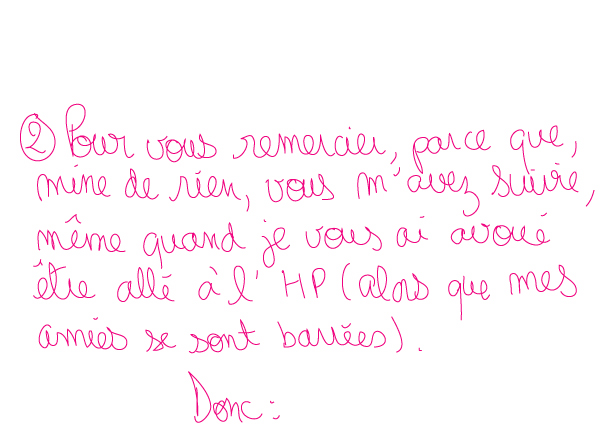 ② Pour vous remercier, parce que,
mine de rien, vous m'avez suivie,
même quand je vous ai avoué
être allé à l'HP (alors que mes
amies se sont barrées).
Donc :